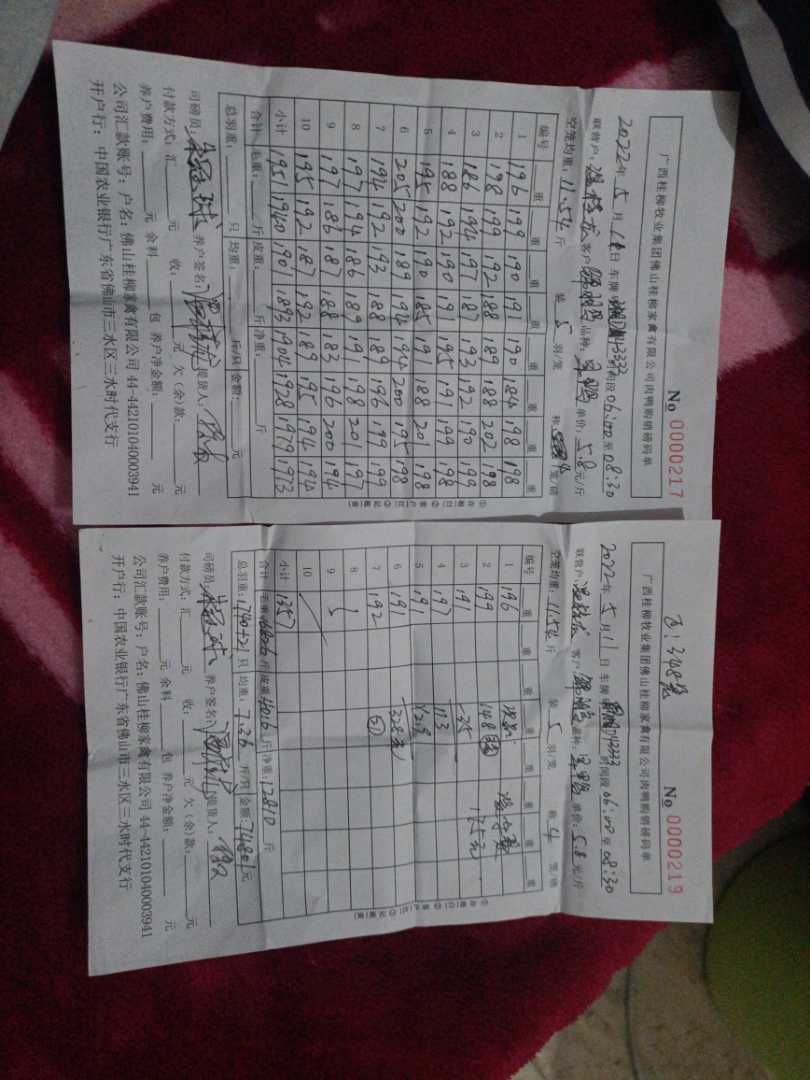 广西桂柳牧业集团佛山桂柳家禽有限公司肉鸭购销磅码单
No 0000217
2022年5月11日 车牌 时间段06:00至08:30
联营户: 客户: 品种: 单价:5.8元/斤
空笼均重:11.54斤 装5羽/笼 称4笼/磅
编号 重 重 重 重 重 重 重 重
1 196 199 190 191 190 184 198 198
2 198 199 192 188 189 188 202 198
3 186 194 197 187 193 192 190 199
4 188 192 190 191 195 191 199 198
5 195 192 190 185 191 188 201 198
6 205 200 189 194 194 200 195 198
7 194 192 193 188 189 196 191 199
8 197 194 186 189 191 198 201 197
9 197 186 187 188 183 196 200 194
10 195 192 187 192 189 195 194 194
小计 1951 1940 1901 1893 1904 1928 1979 1973
合计 毛重: 斤 皮重: 斤 净重: 斤
总羽重: 只 均重: 斤/只 金额: 元
司磅员: 养户签名: 提货人:
付款方式:汇 元 收: 元 欠(余)款: 元
养户费用: 元 余料 包 养户净金额: 元
公司汇款账号:户名:佛山桂柳家禽有限公司 44-442101040003941
开户行:中国农业银行广东省佛山市三水区三水时代支行
348笼
广西桂柳牧业集团佛山桂柳家禽有限公司肉鸭购销磅码单
No 0000219
2022年5月11日 车牌 时间段06:00至08:30
联营户: 客户: 品种: 单价:5.8元/斤
空笼均重:11.54斤 装5羽/笼 称4笼/磅
编号 重 重 重 重 重 重 重 重
1 196
2 199 148
3 191 35
4 197 113
5 191 428
6 191 328
7 192
8
9
10
小计 1357
合计 毛重: 斤 皮重:4016斤 净重:12810斤
总羽重:1740+21只 均重:7.36斤/只 金额:74801元
司磅员: 养户签名: 提货人:
付款方式:汇 元 收: 元 欠(余)款: 元
养户费用: 元 余料 包 养户净金额: 元
公司汇款账号:户名:佛山桂柳家禽有限公司 44-442101040003941
开户行:中国农业银行广东省佛山市三水区三水时代支行